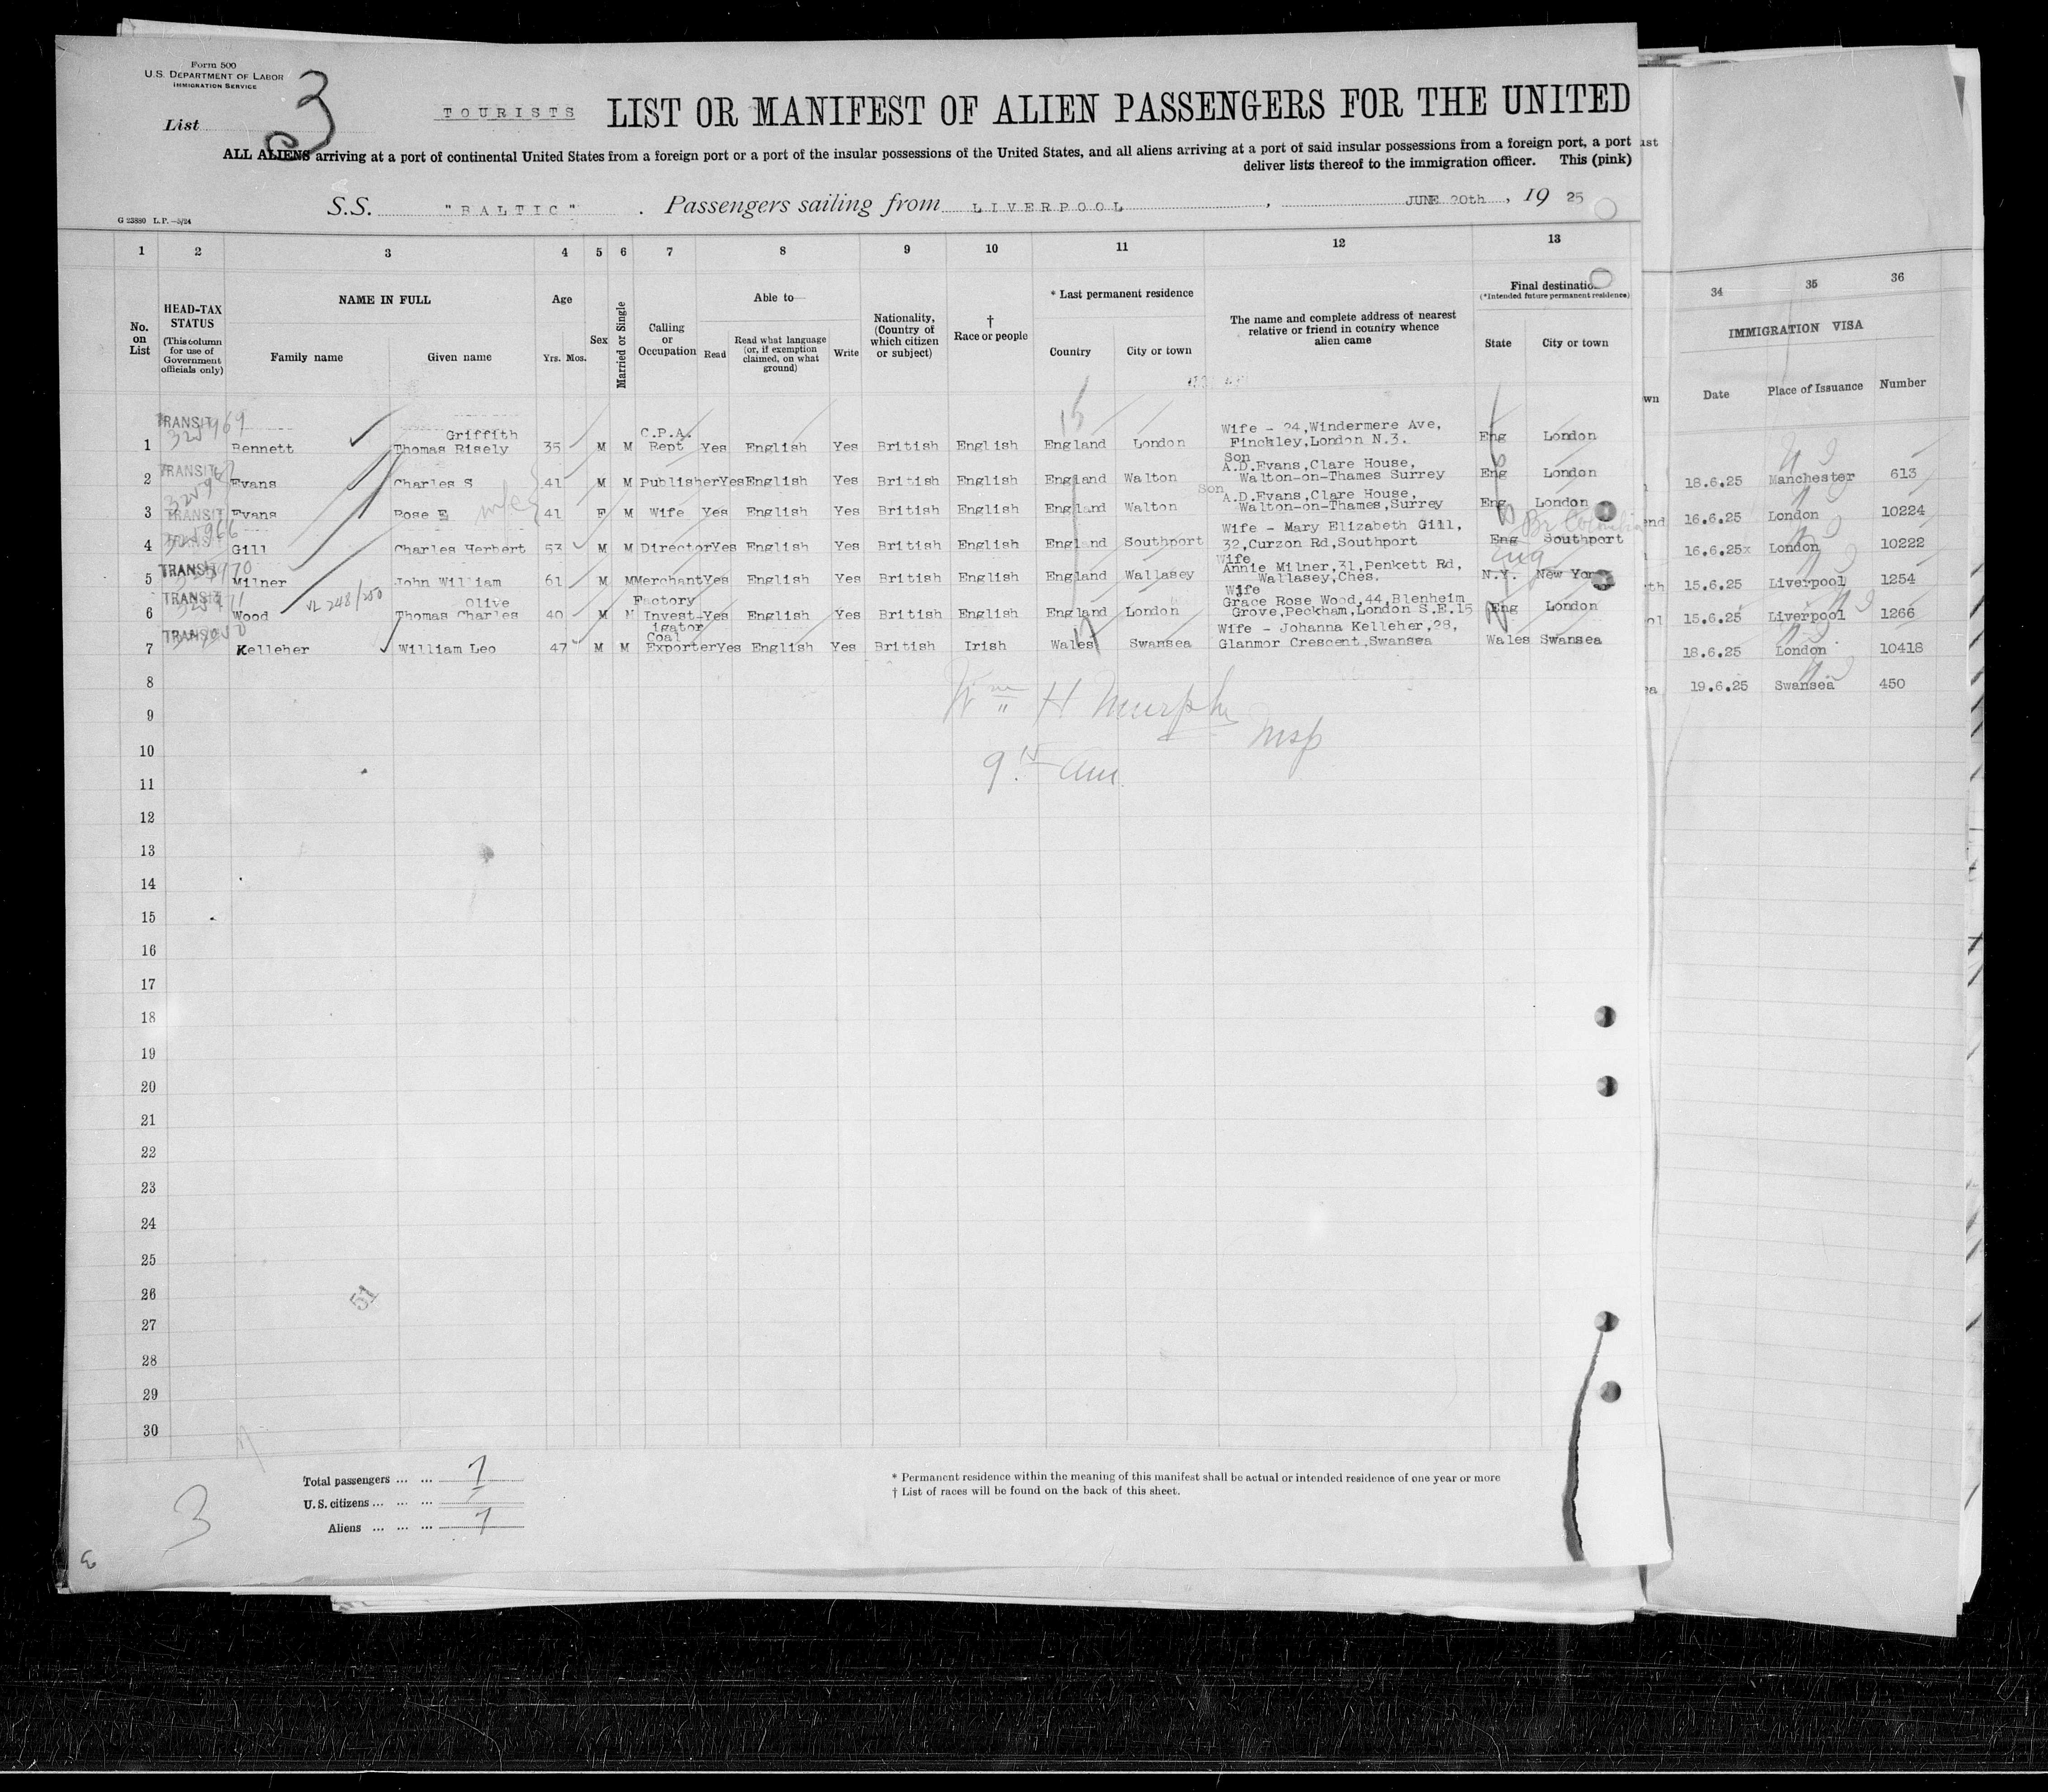 Form 500
U.S. DEPARTMENT OF LABOR
IMMIGRATION SERVICE
List 3
TOURISTS LIST OR MANIFEST OF ALIEN PASSENGERS FOR THE UNITED
ALL ALIENS arriving at a port of continental United States from a foreign port or a port of the insular possessions of the United States, and all aliens arriving at a port of said insular possessions from a foreign port, a port
deliver lists thereof to the immigration officer. This (pink)
S.S. "BALTIC". Passengers sailing from LIVERPOOL, JUNE 20th, 1925
G 23880 L.P.—5/24
1 2 3 4 5 6 7 8 9 10 11 12 13
No. on List
HEAD-TAX STATUS
(This column for use of Government officials only)
NAME IN FULL
Family name Given name
Age
Yrs. Mos.
Sex
Married or Single
Calling or Occupation
Able to—
Read
Read what language (or, if exemption claimed, on what ground)
Write
Nationality, (Country of which citizen or subject)
† Race or people
* Last permanent residence
Country City or town
The name and complete address of nearest relative or friend in country whence alien came
Final destination
(*Intended future permanent residence)
State City or town
34 35 36
IMMIGRATION VISA
Date Place of Issuance Number
1 TRANSIT 325969 Bennett Griffith Thomas Risely 35 M M C.P.A. Rept Yes English Yes British English England London Wife - 24,Windermere Ave, Finckley,London N.3. Eng London
2 TRANSIT Evans Charles S 41 M M Publisher Yes English Yes British English England Walton Son A.D.Evans,Clare House, Walton-on-Thames Surrey Eng London
3 TRANSIT Evans Rose E wife 41 F M Wife Yes English Yes British English England Walton Son A.D.Evans,Clare House, Walton-on-Thames,Surrey Eng London
4 TRANSIT Gill Charles Herbert 53 M M Director Yes English Yes British English England Southport Wife - Mary Elizabeth Gill, 32,Curzon Rd,Southport Eng Southport
5 TRANSIT Milner John William 61 M M Merchant Yes English Yes British English England Wallasey Wife Annie Milner,31,Penkett Rd, Wallasey,Ches. Eng N.Y. New York
6 TRANSIT Wood VL 248/250 Olive Thomas Charles 40 M M Factory Invest-igator Yes English Yes British English England London Wife Grace Rose Wood,44,Blenheim Grove,Peckham,London S.E.15 Eng London
7 TRANSIT Kelleher William Leo 47 M M Coal Exporter Yes English Yes British Irish Wales Swansea Wife - Johanna Kelleher,28, Glanmor Crescent,Swansea Wales Swansea
18.6.25 Manchester 613
16.6.25 London 10224
16.6.25x London 10222
15.6.25 Liverpool 1254
15.6.25 Liverpool 1266
18.6.25 London 10418
19.6.25 Swansea 450
8
Wm H Murphy
9
msp
10
9 15 am
11
12
13
14
15
16
17
18
19
20
21
22
23
24
25
26
51
27
28
29
30
Total passengers ... ... 7
U.S. citizens ... ... ...
Aliens ... ... ... 7
3
* Permanent residence within the meaning of this manifest shall be actual or intended residence of one year or more
† List of races will be found on the back of this sheet.